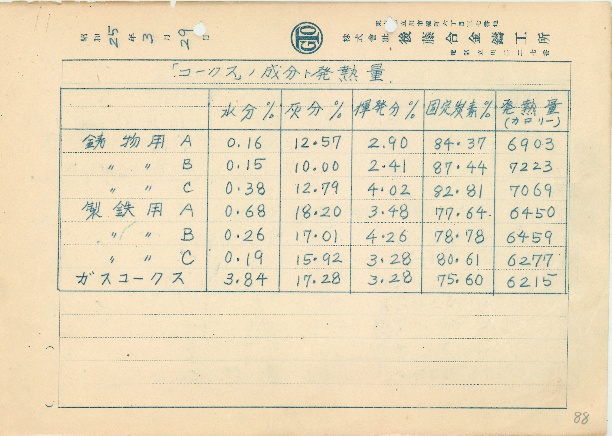 昭和25年3月29日
GTO
株式會社 後藤合金鑄工所
「コークス」ノ成分ト発熱量
水分% 灰分% 揮発分% 固定炭素% 発熱量(カロリー)
鋳物用 A 0.16 12.57 2.90 84.37 6903
〃 〃 B 0.15 10.00 2.41 87.44 7223
〃 〃 C 0.38 12.79 4.02 82.81 7069
製鉄用 A 0.68 18.20 3.48 77.64 6450
〃 〃 B 0.26 17.01 4.26 78.78 6459
〃 〃 C 0.19 15.92 3.28 80.61 6277
ガスコークス 3.84 17.28 3.28 75.60 6215
88